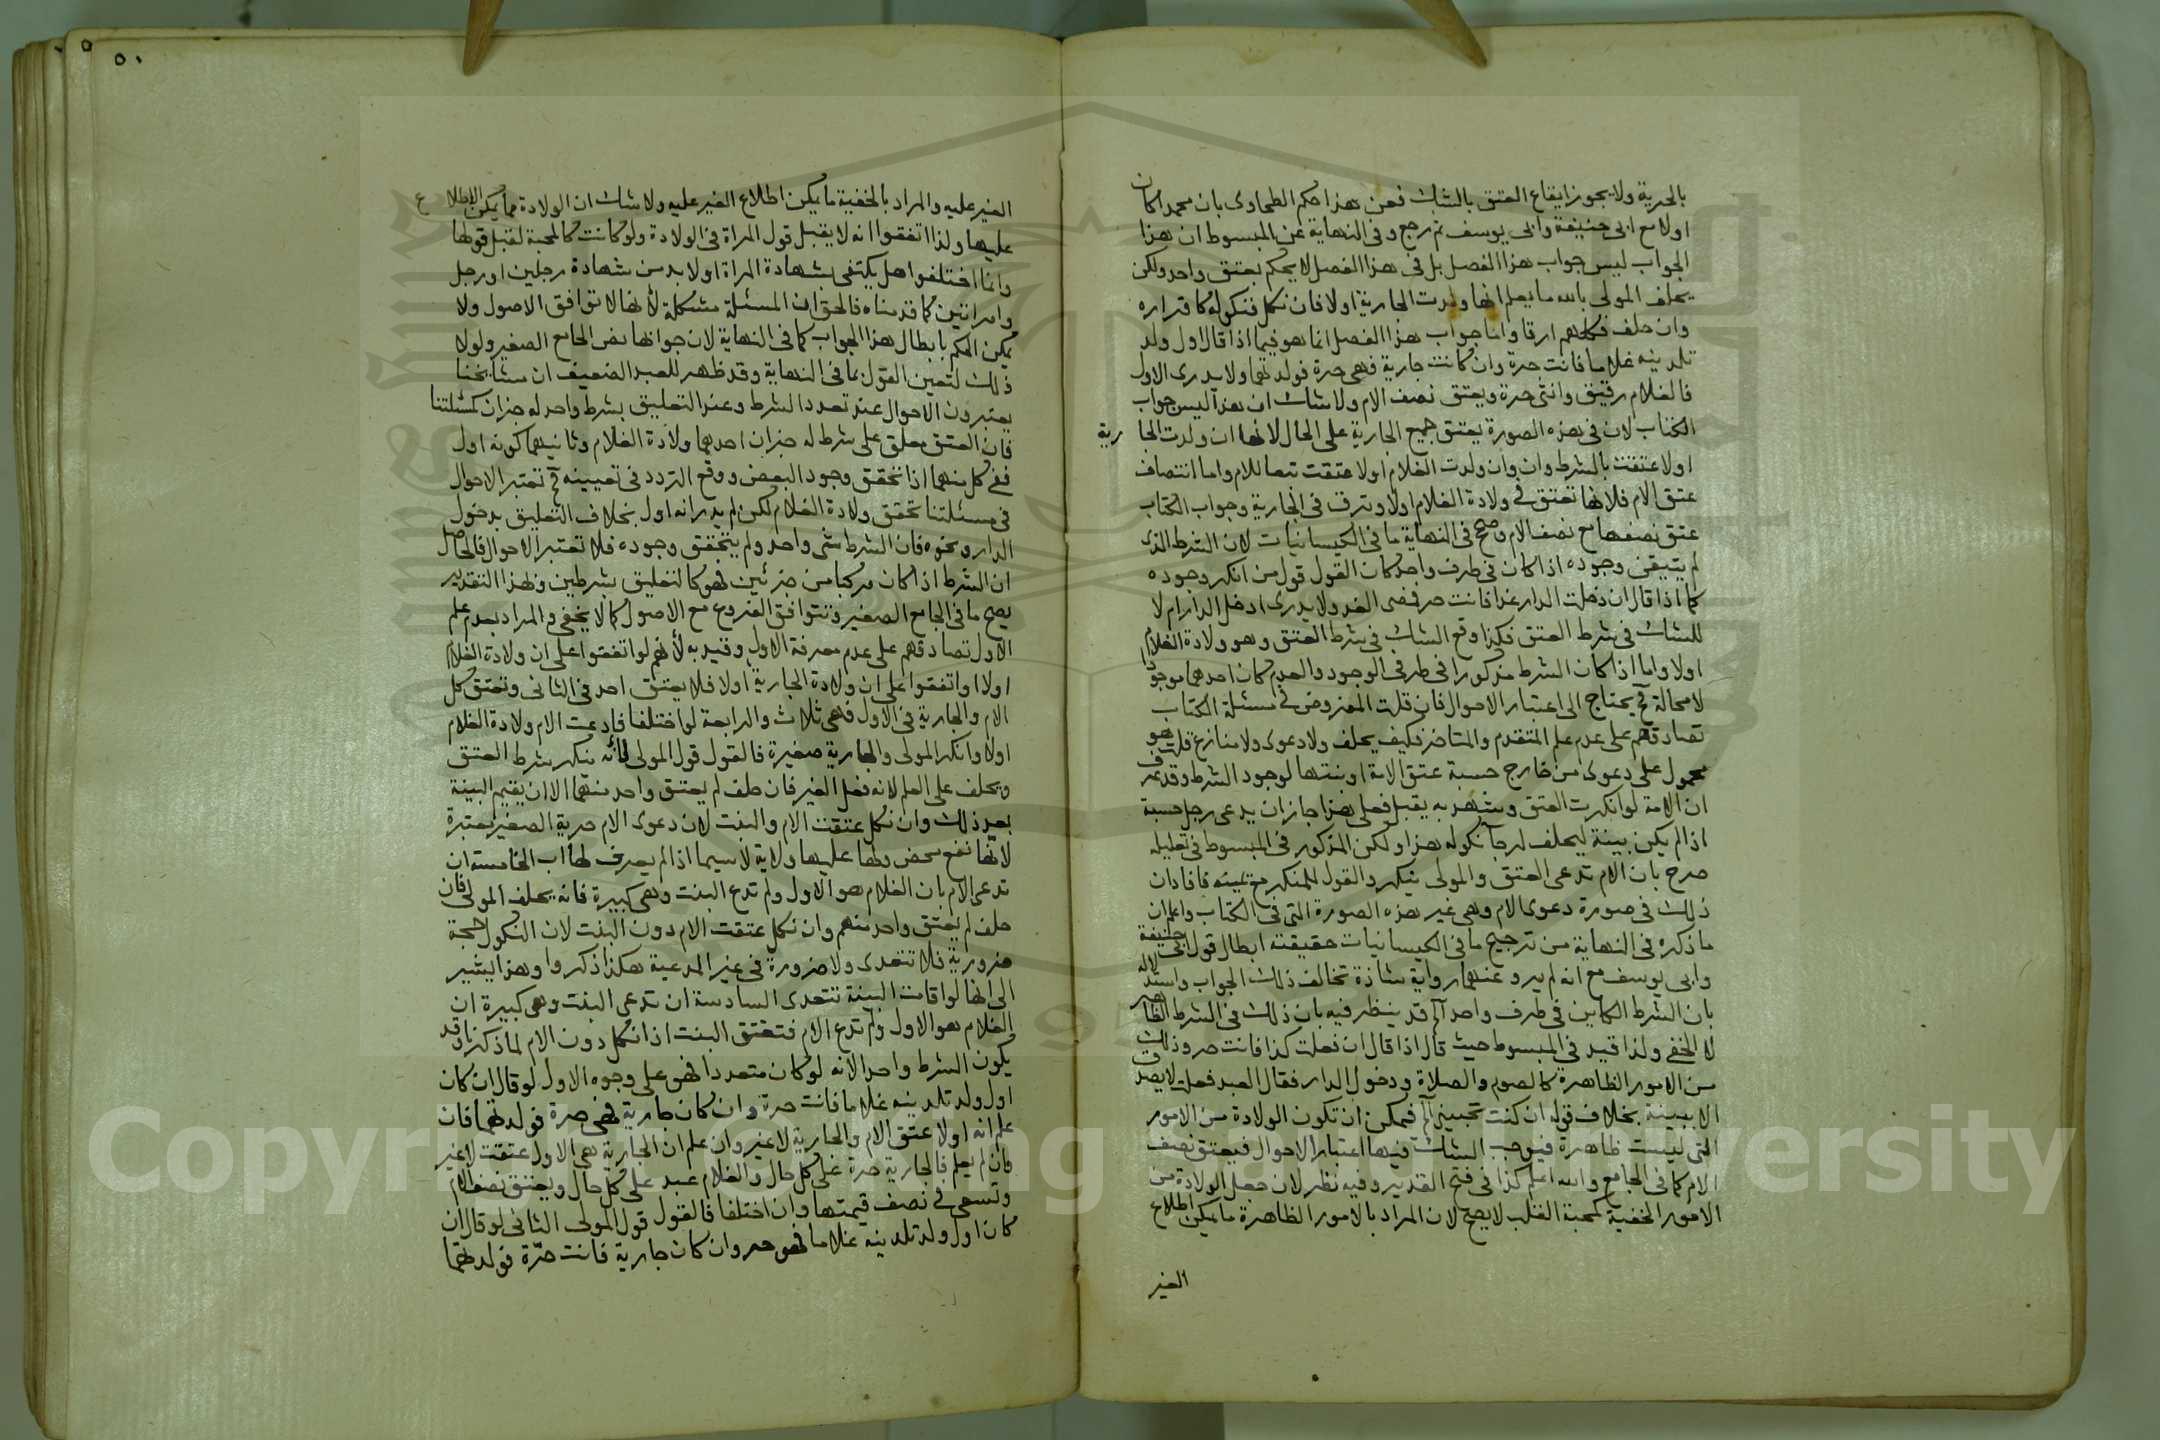 بالحرية ولا يجوز ايقاع العتق بالشك فعن هذا حكم الطحاوى بان محمدا كان
اولا مع ابى حنيفة وابى يوسف ثم رجع وفى النهاية عن المبسوط ان هذا
الجواب ليس جواب هذا الفصل بل فى هذا الفصل لا يحكم بعتق واحد ولكن
يحلف المولى بالله ما يعلم انها ولدت الجارية اولا فان نكل فنكوله كاقراره
وان حلف فكلهم ارقا واما جواب هذا الفصل انما هو فيما اذا قال اول ولد
تلدينه غلاما فانت حرة وان كانت جارية فهى حرة فولدتهما ولا يدرى الاول
فالغلام رقيق وانثى حرة ويعتق نصف الام ولا شك ان هذا ليس جواب
الكتاب لان فى هذه الصورة يعتق جميع الجارية على الحال لانها ان ولدت الجا رية
اولا عتقت بالشرط وان وان ولدت الغلام اولا عتقت تبعا للام واما انتصاف
عتق الام فلانها تعتق فى ولادة الغلام اولا وترق فى الجارية وجواب الكتاب
عتق نصفها مع نصف الام وصحح فى النهاية ما فى الكيسانيات لان الشرط الذى
لم يتيقن وجوده اذا كان فى طرف واحد كان القول قول من انكر وجوده
كما اذا قال ان دخلت الدار غدا فانت حر فمضى الغد ولا يدرى ادخل الدار ام لا
للشك فى شرط العتق فكذا وقع الشك فى شرط العتق وهو ولادة الغلام
اولا واما اذا كان الشرط مذكورا فى طرفى الوجود والعدم كان احدهما موجودا
لا محالة فح يحتاج الى اعتبار الاحوال فان قلت المفروض فى مسئلة الكتاب
تصادقهم على عدم علم المتقدم والمتاخر فكيف يحلف ولا دعوى ولا منازع قلت هو
محمول على دعوى من خارج حسبة عتق الامة او بنتها لوجود الشرط وقد عرف
ان الامة لو انكرت العتق وشهد به يقبل فعلى هذا جاز ان يدعى رجل حسبة
اذا لم يكن بينة ليحلف لرجآ نكوله هذا ولكن المذكور فى المبسوط فى تعليله
صرح بان الام تدعى العتق والمولى ينكر والقول للمنكر مع يمينه فافاد ان
ذلك فى صورة دعوى الام وهى غير هذه الصورة التى فى الكتاب واعلم ان
ما ذكره فى النهاية من ترجيح ما فى الكيسانيات حقيقته ابطال قول ابى حنيفة
وابى يوسف مع انه لم يرو عنهما رواية شاذة تخالف ذلك الجواب واستدلاله
بان الشرط الكاين فى طرف واحد آه قد ينظر فيه بان ذلك فى الشرط الظاهر
لا الخفى ولذا قيد فى المبسوط حيث قال اذا قال ان فعلت كذا فانت حر وذلك
من الامور الظاهرة كالصوم والصلاة ودخول الدار فقال العبد فعلت لا يصدق
الا ببينة بخلاف قوله ان كنت تحبينى آه فيمكن ان تكون الولادة من الامور
التى ليست ظاهرة فيوجب الشك فيها اعتبار الاحوال فيعتق نصف
الام كما فى الجامع والله اعلم كذا فى فتح القدير وفيه نظر لان جعل الولادة من
الامور الخفية كمحبة القلب لا يصح لان المراد بالامور الظاهرة ما يمكن اطلاع
الغير
٥٠
الغير عليه والمراد بالخفية ما يكن اطلاع الغير عليه ولا شك ان الولادة مما يمكن الاطلاع
عليها ولذا اتفقوا انه لا يقبل قول المراة فى الولادة ولو كانت كالمحبة لقبل قولها
وانما اختلفوا هل يكتفى بشهادة المراة او لا بد من شهادة رجلين او رجل
وامراتين كما قدمناه فالحق ان المسئلة مشكلة لانها لا توافق الاصول ولا
يمكن الحكم بابطال هذا الجواب كما فى النهاية لان جوابها نص الجامع الصغير ولولا
ذلك لتعين القول بما فى النهاية وقد ظهر للعبد الضعيف ان مشايخنا
يعتبرون الاحوال عند تعدد الشرط وعند التعليق بشرط واحد له جزان كمسئلتنا
فان العتق معلق على شرط له جزان احدهما ولادة الغلام وثانيهما كونه اول
ففى كل منهما اذا تحقق وجود البعض ووقع التردد فى تعيينه فح تعتبر الاحوال
فى مسئلتنا تحقق ولادة الغلام لكن لم يدر انه اول بخلاف التعليق بدخول
الدار ونحوه فان الشرط شى واحد ولم يتحقق وجوده فلا تعتبر الاحوال فالحاصل
ان الشرط اذا كان مركبا من جزئين فهو كالتعليق بشرطين وبهذا التقدير
يصح ما فى الجامع الصغير وتتوافق الفروع مع الاصول كما لا يخفى والمراد بعدم علم
الاول تصادقهم على عدم معرفة الاول وقيد به لأنهم لو اتفقوا على ان ولادة الغلام
اولا او اتفقوا على ان ولادة الجارية اولا فلا يعتق احد فى الثانى وتعتق كل
الام والجارية فى الاول فهى ثلاث والرابعة لو اختلفا فادعت الام ولادة الغلام
اولا وانكر المولى والجارية صغيرة فالقول قول المولى لأنه ينكر شرط العتق
ويحلف على العلم لانه فعل الغير فان حلف لم يعتق واحد منهما الا ان يقيم البينة
بعد ذلك وان نكل عتقت الام والبنت لان دعوى الام حرية الصغير معتبرة
لانها نفع محض ولها عليها ولاية لا سيما اذا لم يعرف لها اب الخامسة ان
تدعى الام بان الغلام هو الاول ولم تدع البنت وهى كبيرة فانه يحلف المولى فان
حلف لم يعتق واحد منهم وان نكل عتقت الام دون البنت لان النكول حجة
ضرورية فلا تتعدى ولا ضرورة فى غير المدعية هكذا ذكروا وهذا يشير
الى انها لو اقامت البينة تتعدى السادسة ان تدعى البنت وهى كبيرة ان
الغلام هو الاول ولم تدع الام فتعتق البنت اذا نكل دون الام لما ذكرنا وقد
يكون الشرط واحدا لانه لو كان متعددا فهو على وجوه الاول لو قال ان كان
اول ولد تلدينه غلاما فانت حرة وان كان جارية فهى حرة فولدتهما فان
علم انه اولا عتق الام والجارية لا غير وان علم ان الجارية هى الاول عتقت لا غير
فان لم يعلم فالجارية حرة على كل حال والغلام عبد على كل حال ويعتق نصف الام
وتسعى فى نصف قيمتها وان اختلفا فالقول قول المولى الثانى لو قال ان
كان اول ولد تلدينه غلاما فهو حر وان كان جارية فانت حرّة فولدتهما
Copyright © King Saud University